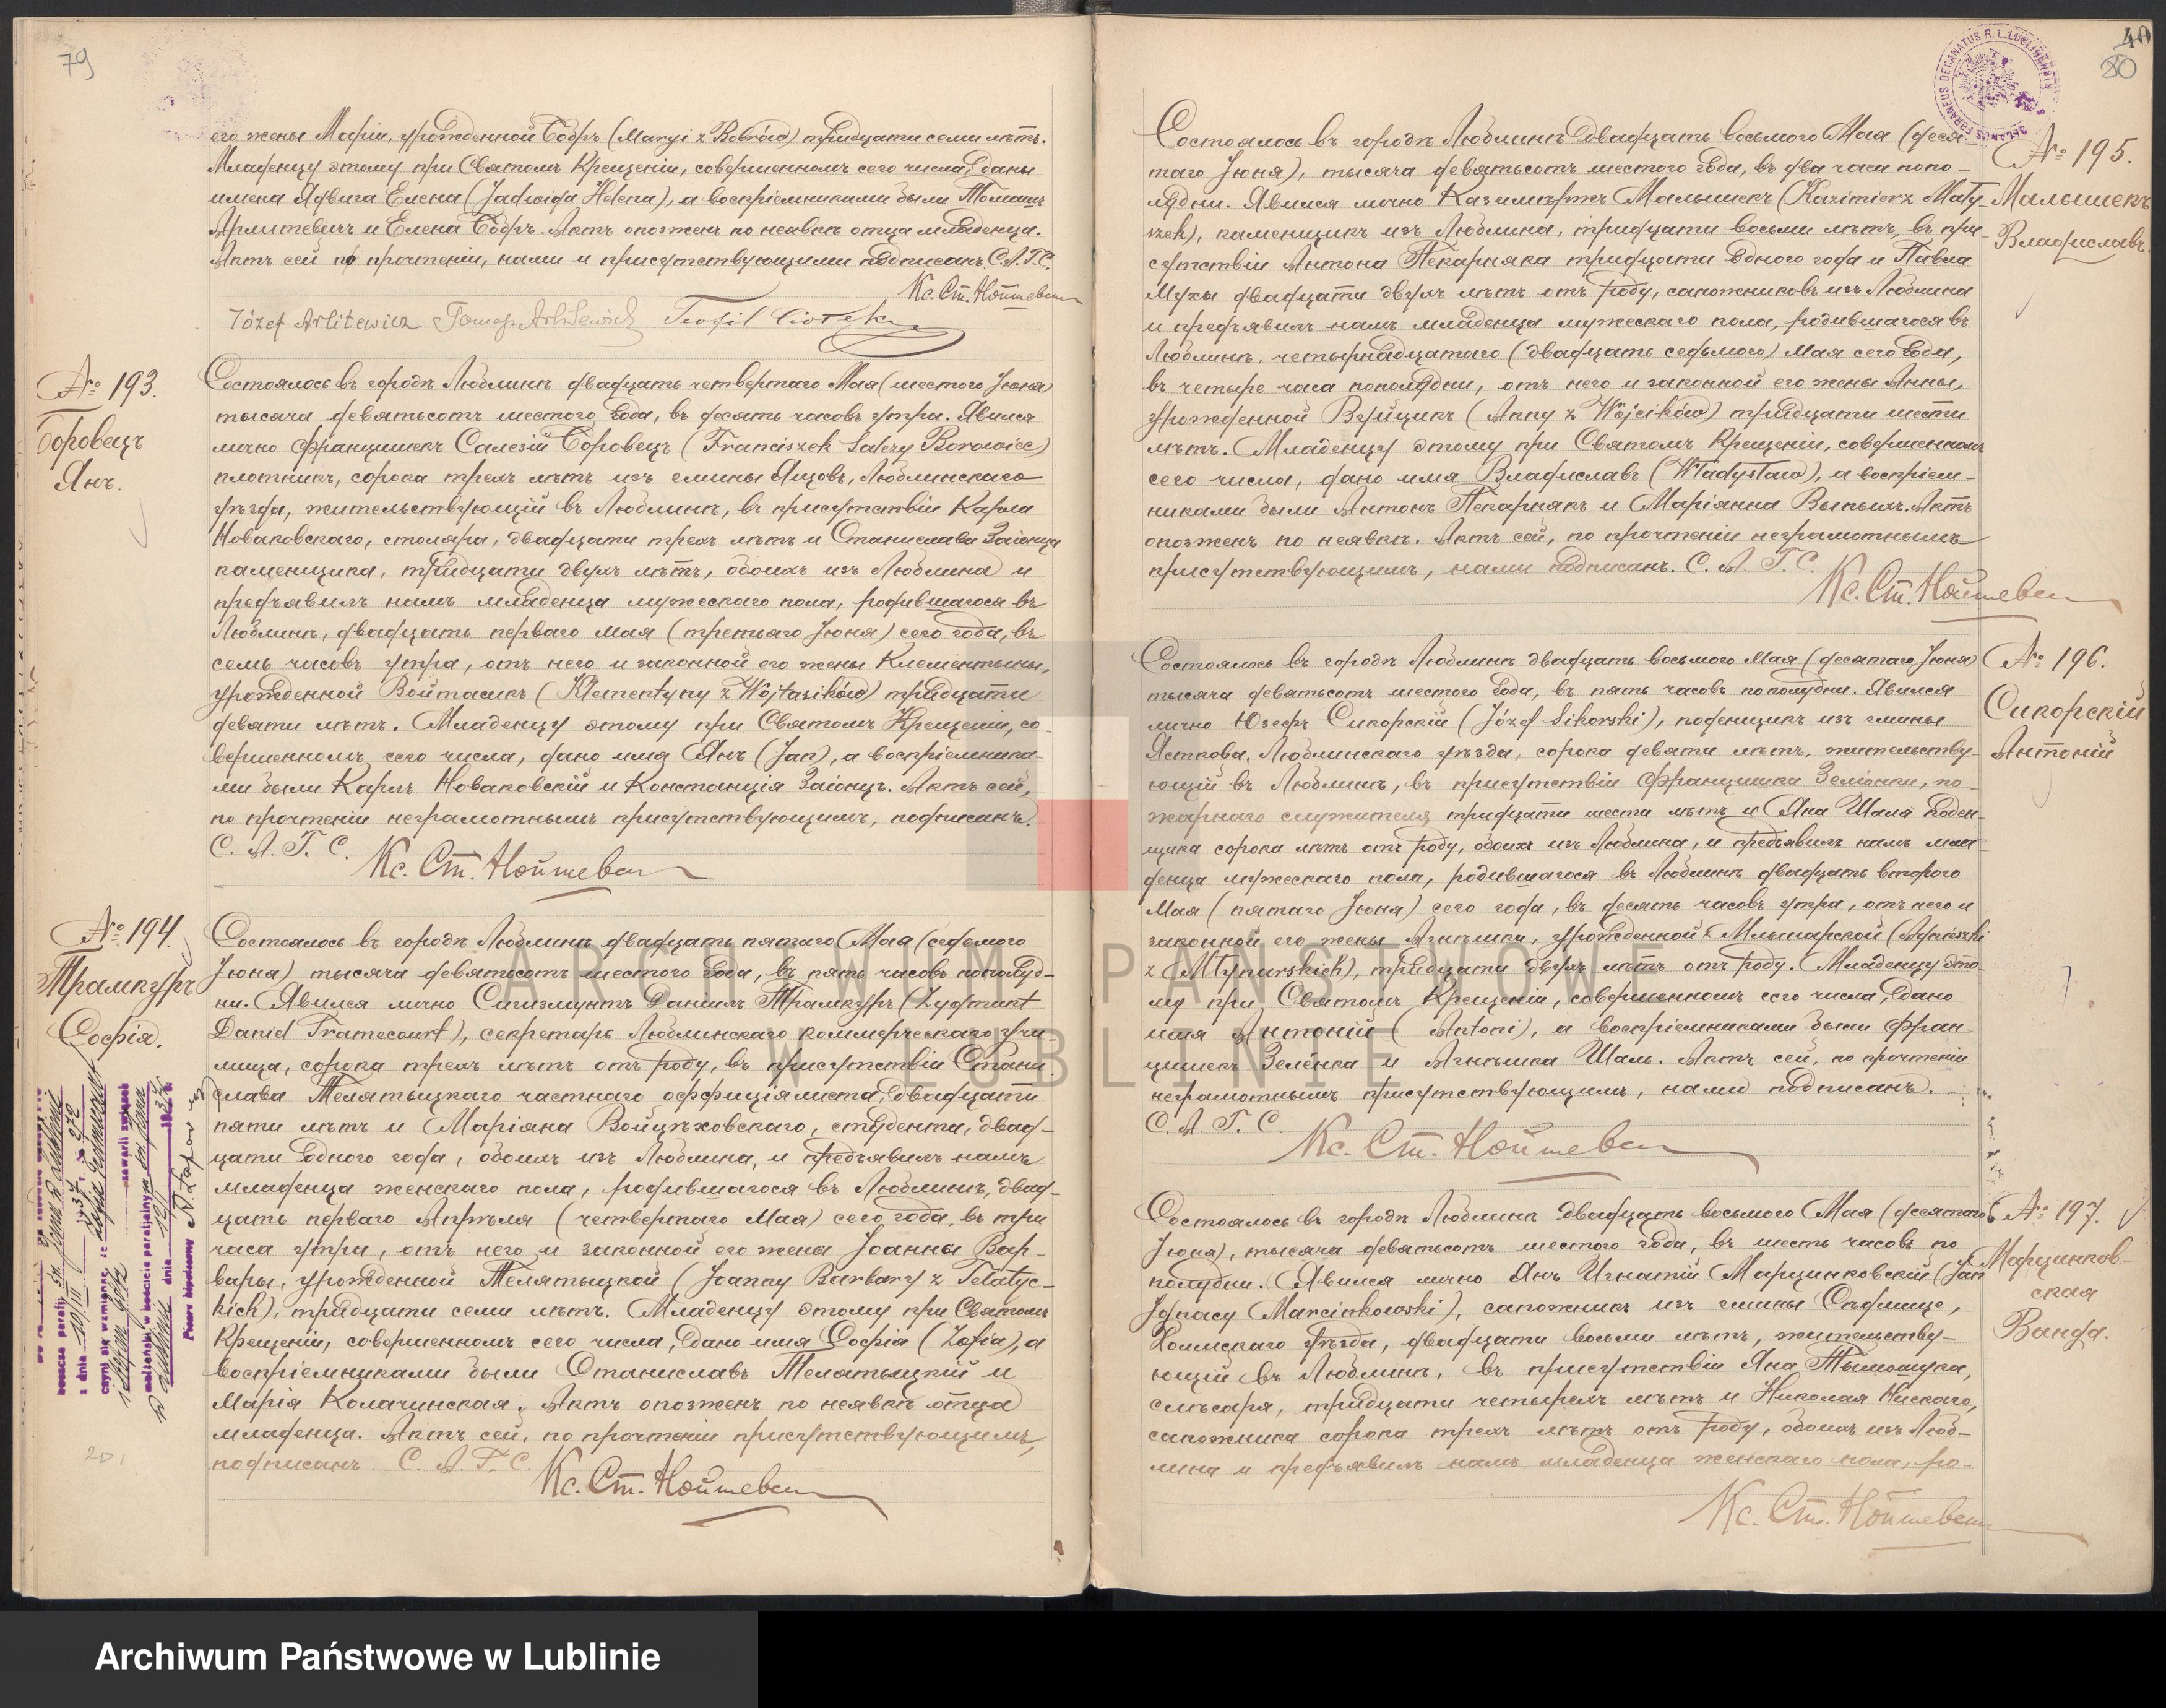 79
его жены Маріи, урожденной Бобръ (Maryi z Bobrów) тридцати семи лѣтъ.
Младенцу этому при Святомъ Крещеніи, совершенномъ сего числа, даны
имена Ядвига Елена (Jadwiga Helena), а воспріемниками были Томашъ
Арлитевичъ и Елена Бобръ. Актъ опозженъ по неявкѣ отца младенца.
Актъ сей по прочтеніи, нами и присутствующими подписанъ. С.А.Г.С.
Кс. Ст.
Józef Arlitewicz Tomasz Arlitewicz Teofil
№ 193.
Боровецъ
Янъ.
Состоялось въ городѣ Люблинѣ двадцать четвертаго Мая (шестого Іюня)
тысяча девятьсотъ шестого года, въ десять часовъ утра. Явился
лично Францишекъ Салезій Боровецъ (Franciszek Salezy Borowiec)
плотникъ, сорока трехъ лѣтъ изъ гмины Ящовъ, Люблинскаго
уѣзда, жительствующій въ Люблинѣ, въ присутствіи Карла
Новаковскаго, столяра, двадцати трехъ лѣтъ и Станислава Заіонца
каменщика, тридцати двухъ лѣтъ, обоихъ изъ Люблина и
предъявилъ намъ младенца мужескаго пола, родившагося въ
Люблинѣ, двадцать перваго Мая (третьяго Іюня) сего года, въ
семь часовъ утра, отъ него и законной его жены Клементыны,
урожденной Войтасикъ (Klementyny z Wójtasików) тридцати
девяти лѣтъ. Младенцу этому при Святомъ Крещеніи, со-
вершенномъ сего числа, дано имя Янъ (Jan), а воспріемника-
ми были Карлъ Новаковскій и Констанція Заіонцъ. Актъ сей,
по прочтеніи неграмотнымъ присутствующимъ, подписанъ.
С. А. Г. С. Кс. Ст.
№ 194.
Трамкуръ
Софія.
Состоялось въ городѣ Люблинѣ двадцать пятаго Мая (седьмого
Іюня) тысяча девятьсотъ шестого года, въ пять часовъ пополуд-
ни. Явился лично Сигизмунтъ Данилъ Трамкуръ (Zygmunt
Daniel Tramecourt), секретарь Люблинскаго коммерческаго учи-
лища, сорока трехъ лѣтъ отъ роду, въ присутствіи Стани-
слава Телятыцкаго частнаго оффиціялиста, двадцати
пяти лѣтъ и Маріяна Войцѣховскаго, студента, двад-
цати одного года, обоихъ изъ Люблина, и предъявилъ намъ
младенца женскаго пола, родившагося въ Люблинѣ, двад-
цать перваго Апрѣля (четвертаго Мая) сего года, въ три
часа утра, отъ него и законной его жены Іоанны Вар-
вары, урожденной Телятыцкой (Joanny Barbary z Telatyc-
kich), тридцати семи лѣтъ. Младенцу этому при Святомъ
Крещеніи, совершенномъ сего числа, дано имя Софія (Zofia), а
воспріемниками были Станиславъ Телятыцкій и
Марія Колачинская. Актъ опозженъ по неявкѣ отца
младенца. Актъ сей, по прочтеніи присутствующимъ,
подписанъ. С. А. Г. С. Кс. Ст.
40
80
№ 195.
Малышекъ
Владиславъ.
Состоялось въ городѣ Люблинѣ двадцать восьмого Мая (деся-
таго Іюня), тысяча девятьсотъ шестого года, въ два часа попо-
лудни. Явился лично Казимѣржъ Малышекъ (Kazimierz Mały-
szek), каменщикъ изъ Люблина, тридцати восьми лѣтъ, въ при-
сутствіи Антона Пекарняка тридцати одного года и Павла
Мухи двадцати двухъ лѣтъ отъ роду, сапожниковъ изъ Люблина
и предъявилъ намъ младенца мужескаго пола, родившагося въ
Люблинѣ, четырнадцатаго (двадцать седьмого) Мая сего года,
въ четыре часа пополудни, отъ него и законной его жены Анны,
урожденной Вуйцикъ (Anny z Wójcików) тридцати шести
лѣтъ. Младенцу этому при Святомъ Крещеніи, совершенномъ
сего числа, дано имя Владиславъ (Władysław), а воспріем-
никами были Антонъ Пекарнякъ и Маріянна Выпыхъ. Актъ
опозженъ по неявкѣ. Актъ сей, по прочтеніи неграмотнымъ
присутствующимъ, нами подписанъ. С. А. Г. С.
Кс. Ст.
№ 196.
Сикорскій
Антоній
Состоялось въ городѣ Люблинѣ двадцать восьмого Мая (десятаго Іюня)
тысяча девятьсотъ шестого года, въ пять часовъ пополудни. Явился
лично Юзефъ Сикорскій (Józef Sikorski), поденщикъ изъ гмины
Ясткова, Люблинскаго уѣзда, сорока девяти лѣтъ, жительству-
ющій въ Люблинѣ, въ присутствіи Францишка Зелёнки, по-
жарнаго служителя тридцати шести лѣтъ и Яна Шаля поден-
щика сорока лѣтъ отъ роду, обоихъ изъ Люблина, и предъявилъ намъ мла-
денца мужескаго пола, родившагося въ Люблинѣ двадцать второго
Мая (пятаго Іюня) сего года, въ десять часовъ утра, отъ него и
законной его жены Агнѣшки, урожденной Млынарской (Agnieszki
z Młynarskich), тридцати двухъ лѣтъ отъ роду. Младенцу это-
му при Святомъ Крещеніи, совершенномъ сего числа, дано
имя Антоній (Antoni), а воспріемниками были Фран-
цишекъ Зелёнка и Агнѣшка Шаль. Актъ сей, по прочтеніи
неграмотнымъ присутствующимъ, нами подписанъ.
С. А. Г. С. Кс. Ст.
№ 197.
Марцинков-
ская
Ванда.
Состоялось въ городѣ Люблинѣ двадцать восьмого Мая (десятаго
Іюня), тысяча девятьсотъ шестого года, въ шесть часовъ по
полудни. Явился лично Янъ Игнатій Марцинковскій (Jan
Ignacy Marcinkowski), сапожникъ изъ гмины Сѣдлище,
Холмскаго уѣзда, двадцати восьми лѣтъ, жительству-
ющій въ Люблинѣ, въ присутствіи Яна Тымошука,
слѣсаря, тридцати четырехъ лѣтъ и Николая Нискаго,
сапожника сорока трехъ лѣтъ отъ роду, обоихъ изъ Люб-
лина и предъявилъ намъ младенца женскаго пола, ро-
Кс. Ст.
ARCHIWUM PAŃSTWOWE
W LUBLINIE
Archiwum Państwowe w Lublinie